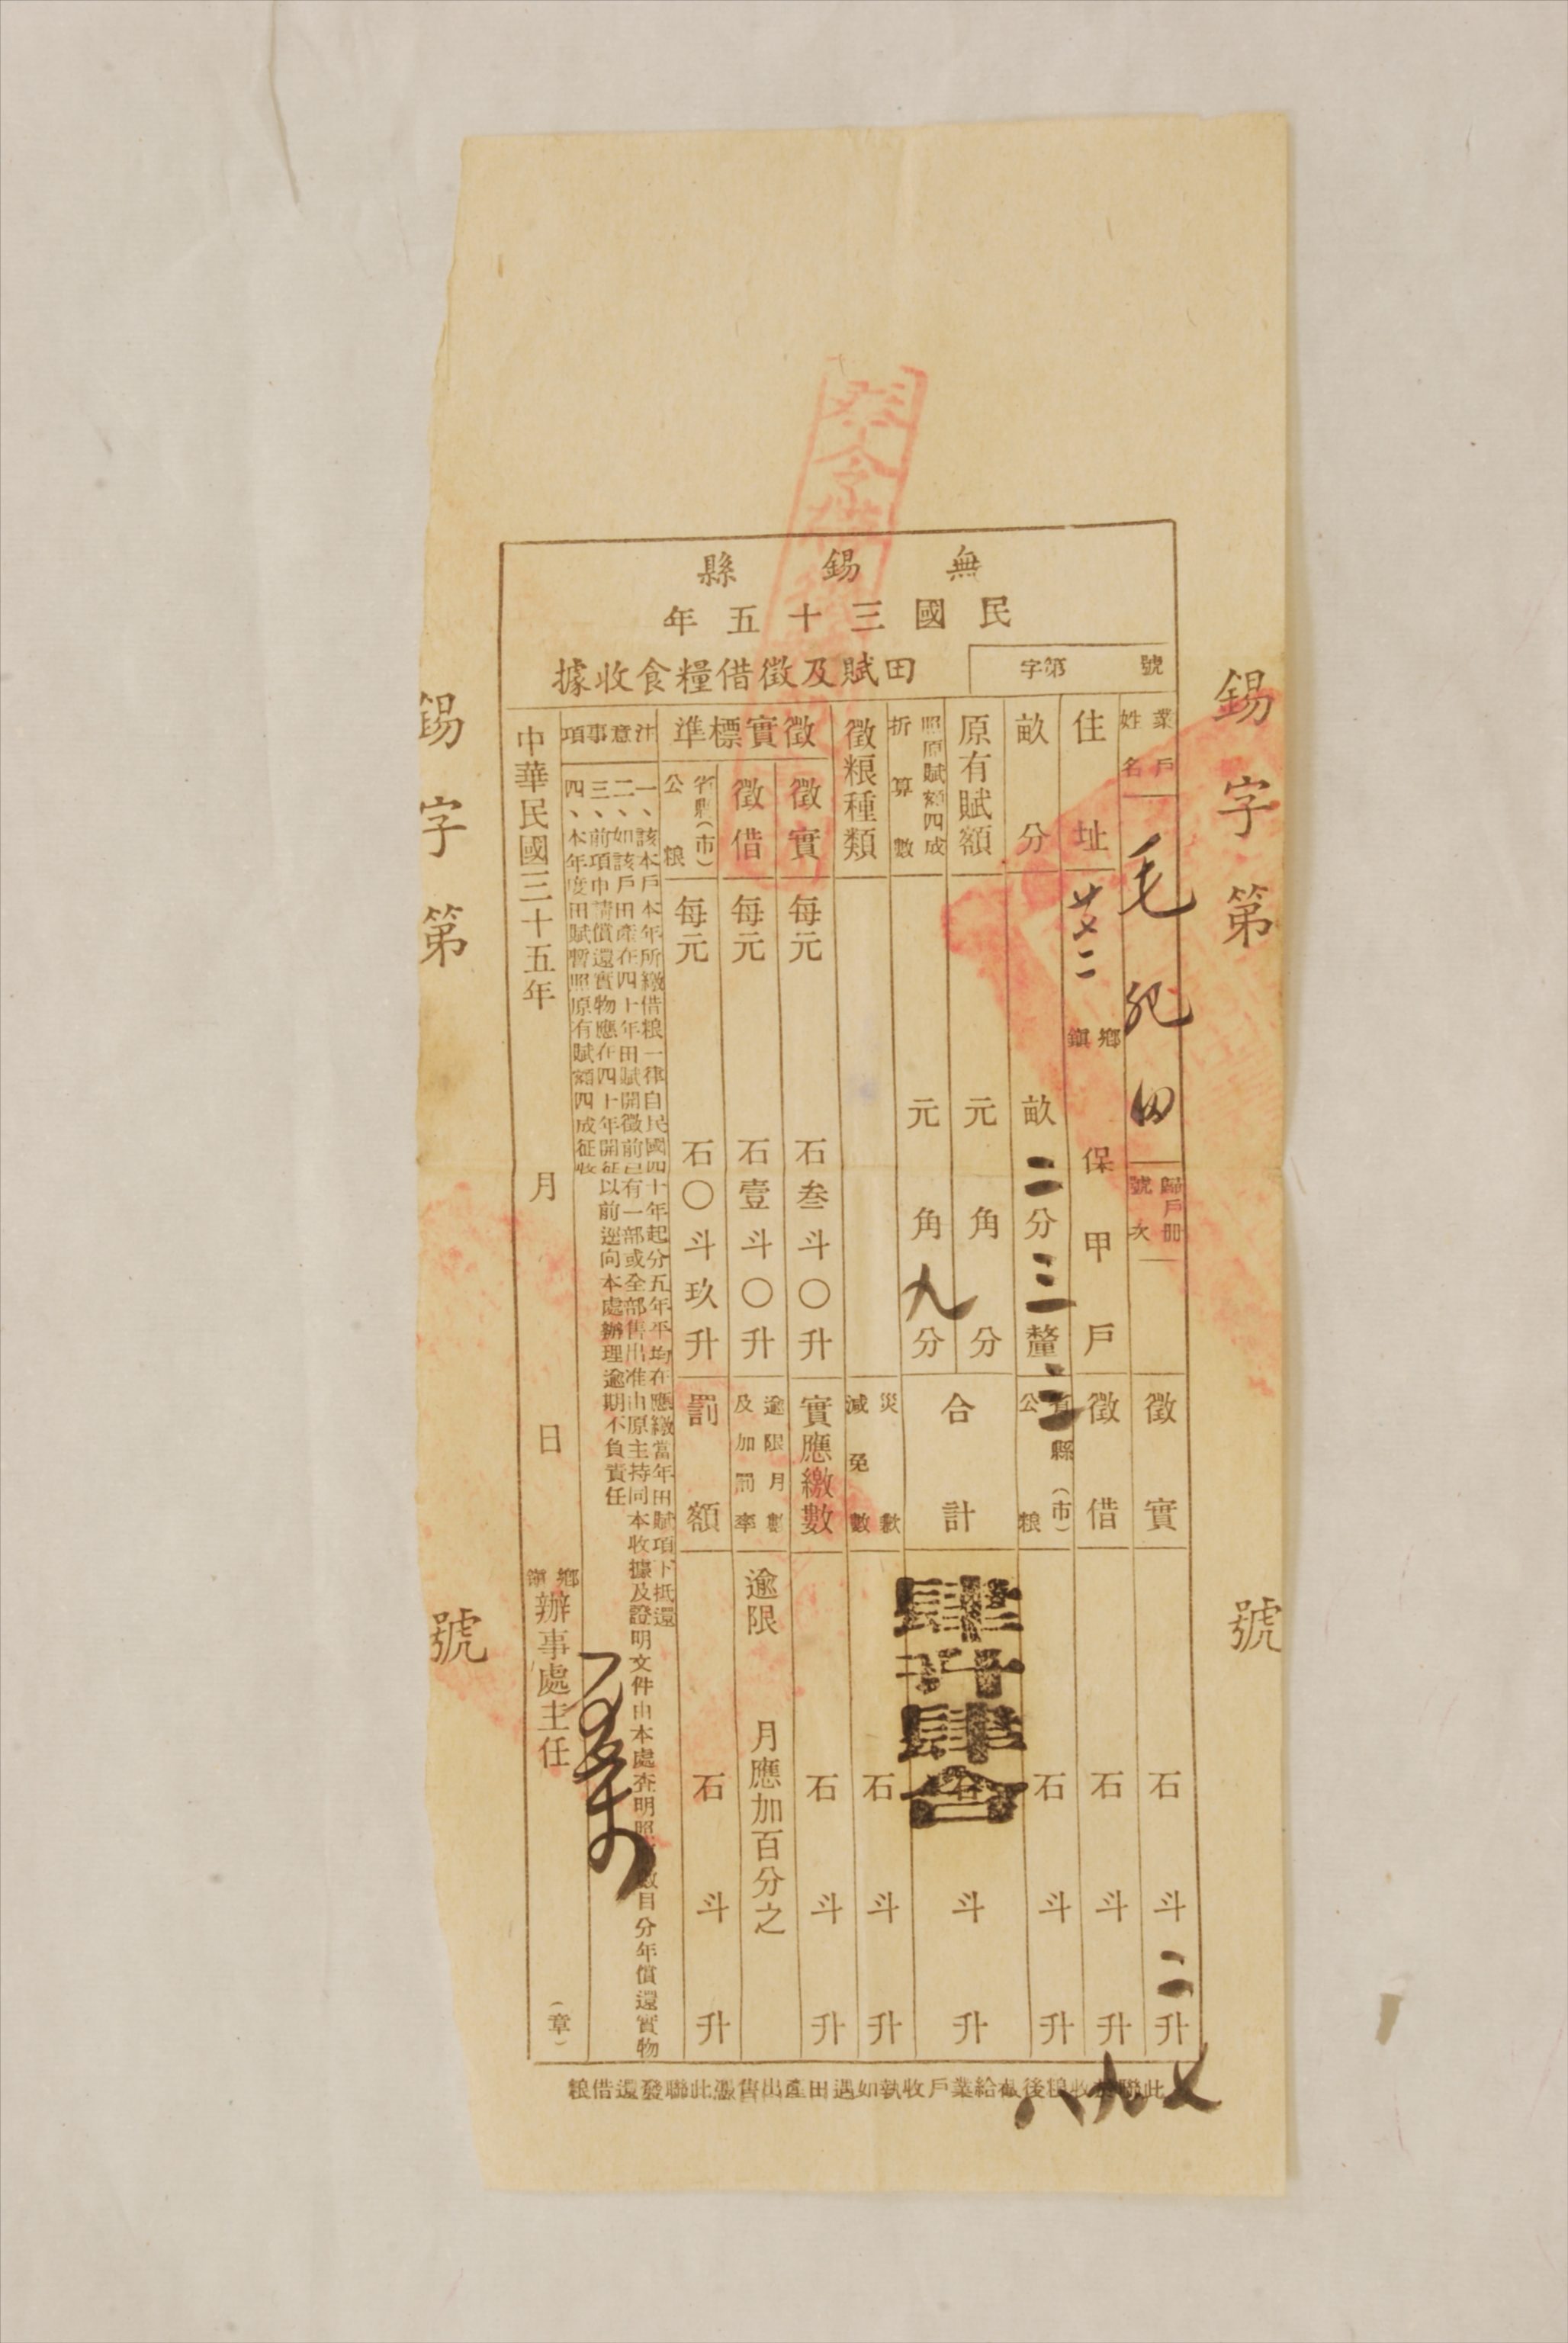 無錫縣
民國三十五年
田賦及徵借糧食收據
字第 號
錫字第 號
業戶姓名 毛
歸戶冊號次
住址 鄉鎮 保 甲 戶
畝分 畝二分三釐
原有賦額 元 角 分
照原賦額四成折算數 元 角九分
徵粮種類
徵實標準
徵實 每元 石叁斗〇升
徵借 每元 石壹斗〇升
省縣(市)公粮 每元 石〇斗玖升
徵實 石 斗二升
徵借 石 斗 升
省縣(市)公粮 石 斗 升
合計 肆升肆合 石 斗 升
災歉減免數 石 斗 升
實應繳數 石 斗 升
逾限月數及加罰率 逾限 月應加百分之
罰額 石 斗 升
注意事項
一、該本戶本年所繳借粮一律自民國四十年起分五年平均在應繳當年田賦項下抵還
二、如該戶田產在四十年田賦開徵前已有一部或全部售出准由原主持同本收據及證明文件由本處查明照 數目分年償還實物
三、前項申請償還實物應在四十年開征以前逕向本處辦理逾期不負責任
四、本年度田賦暫照原有賦額四成征收
中華民國三十五年 月 日
鄉鎮辦事處主任 (章)
錫字第 號
此聯 收粮後裁給業戶收執如遇田產出售憑此聯發還借粮